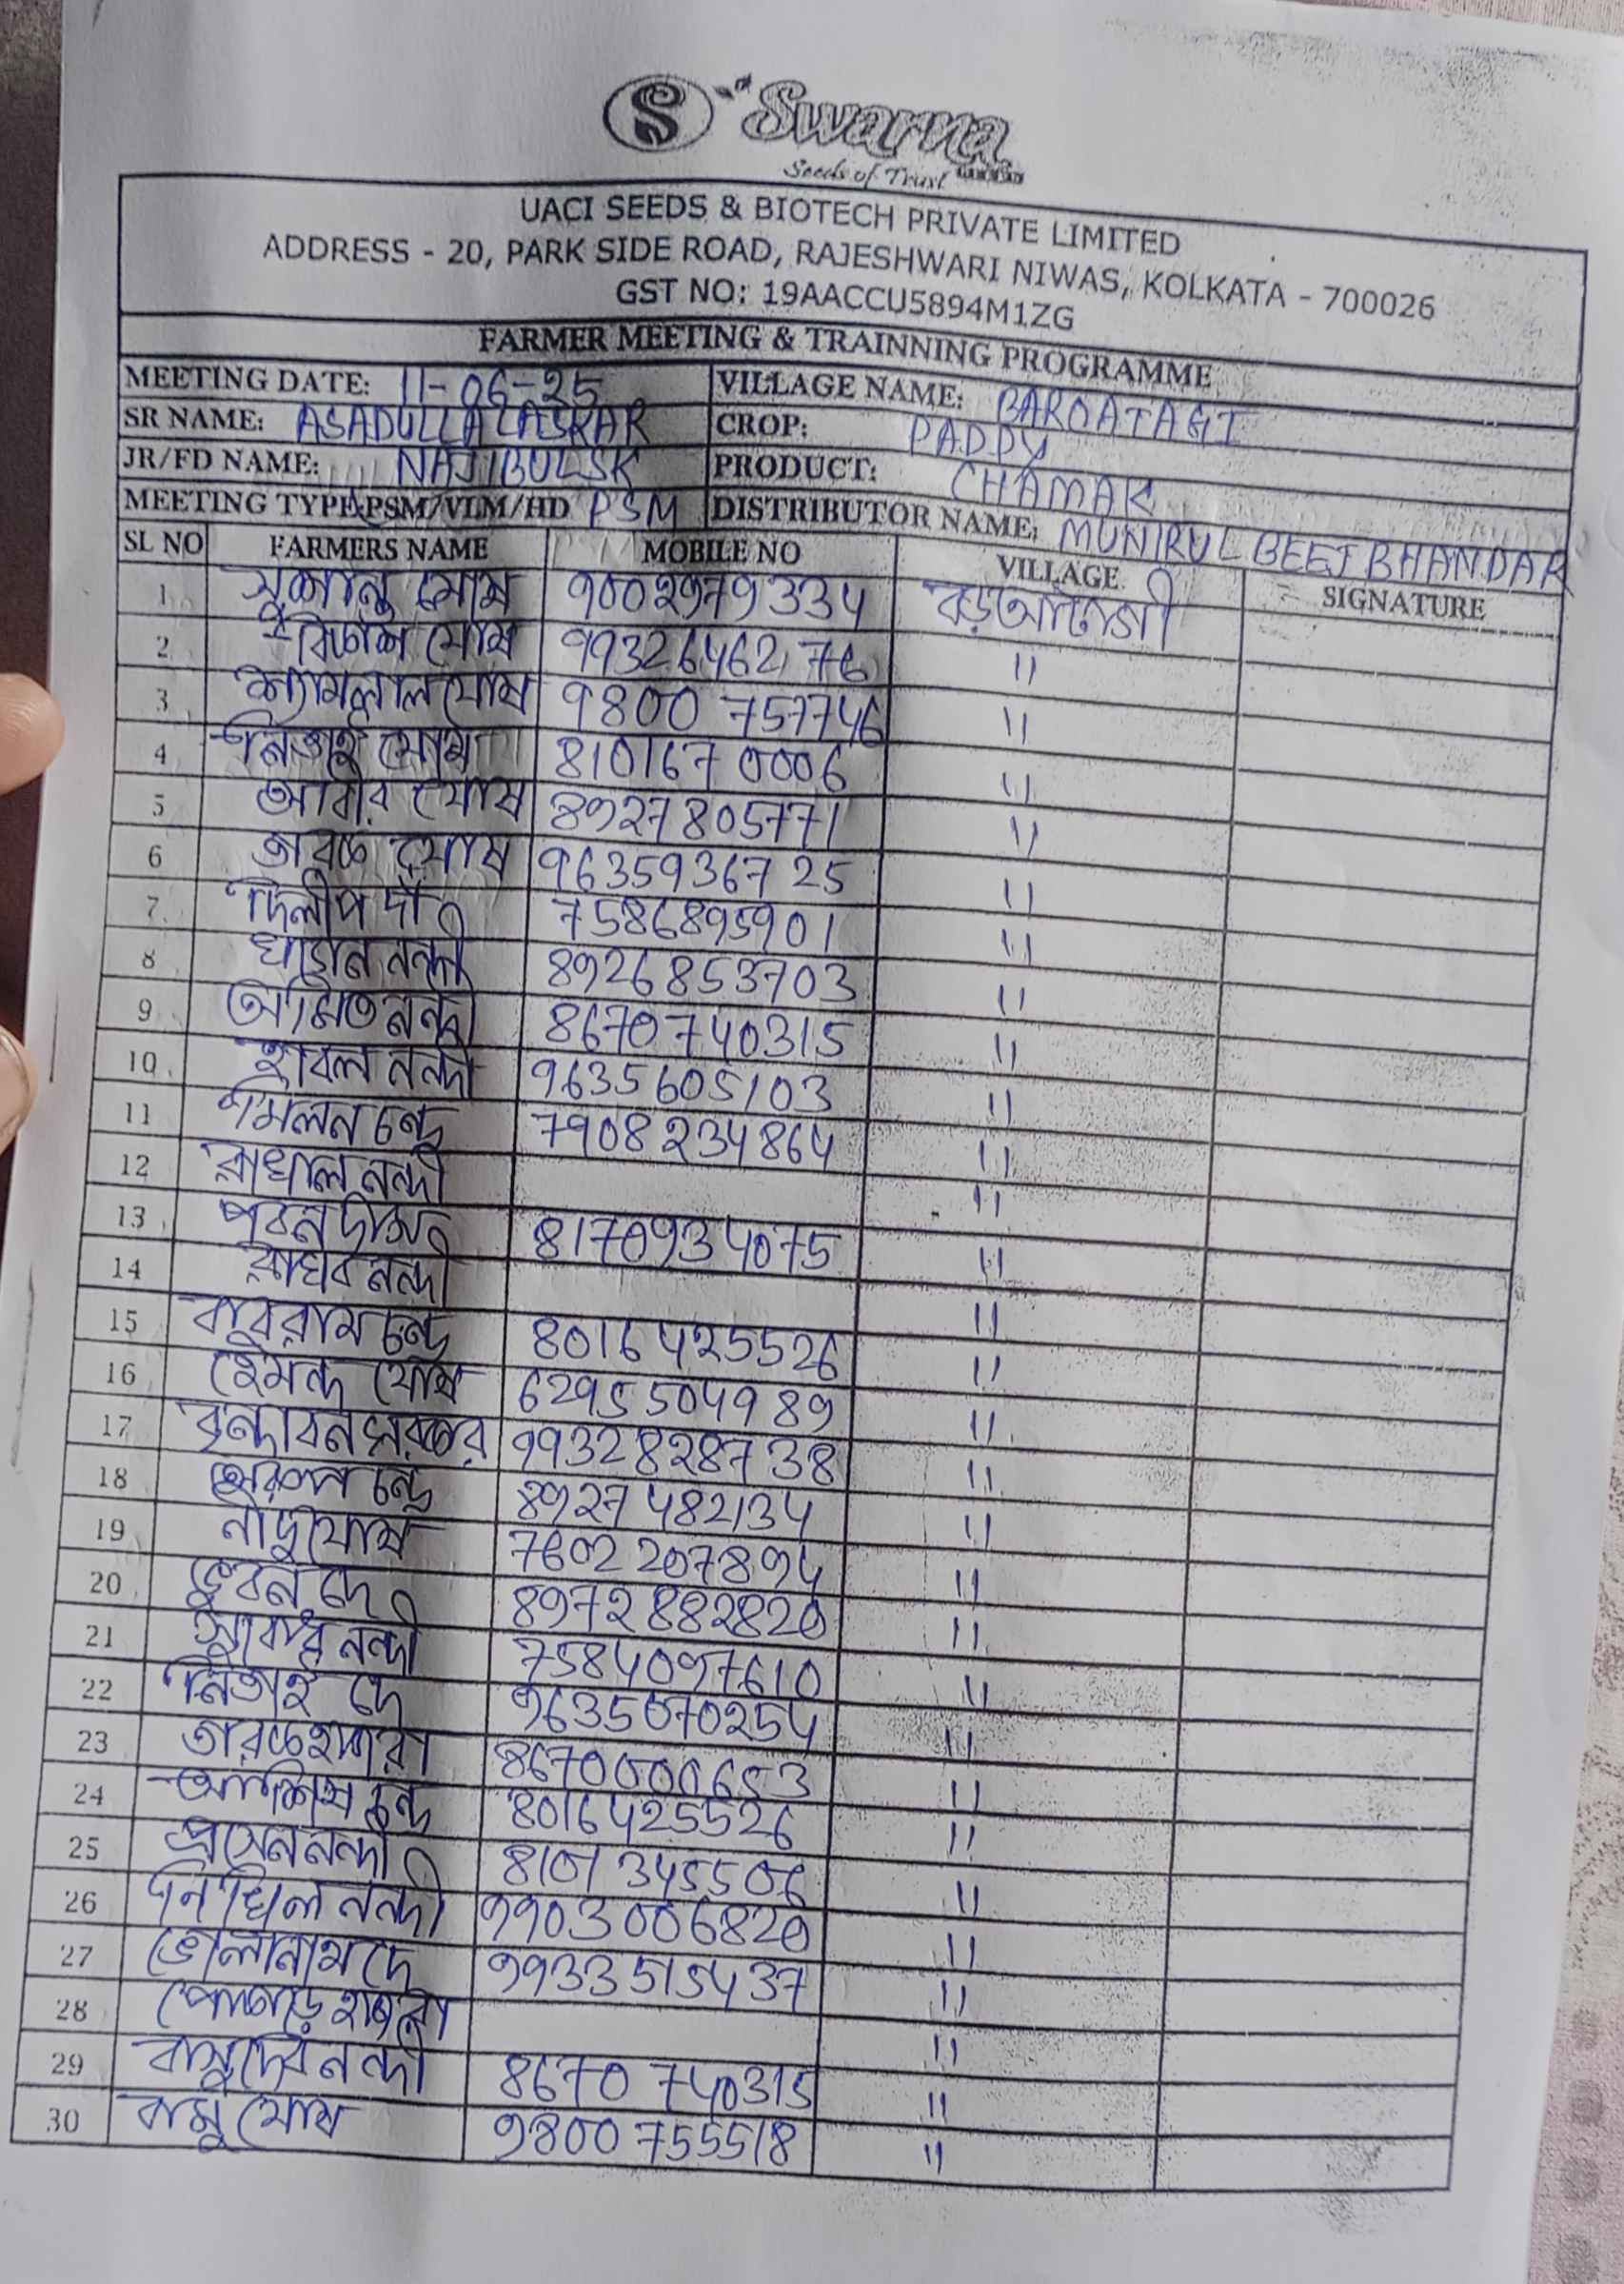 S Swarna
Seeds of Trust
UACI SEEDS & BIOTECH PRIVATE LIMITED
ADDRESS - 20, PARK SIDE ROAD, RAJESHWARI NIWAS, KOLKATA - 700026
GST NO: 19AACCU5894M1ZG
FARMER MEETING & TRAINNING PROGRAMME
MEETING DATE: 11-06-25 VILLAGE NAME: BAROATAGI
SR NAME: ASADULLA LASKAR CROP: PADDY
JR/FD NAME: NAJIBUL SK PRODUCT: CHAMAK
MEETING TYPE:PSM/VLM/HD PSM DISTRIBUTOR NAME: MUNIRUL BEEJ BHANDAR
SL NO FARMERS NAME MOBILE NO VILLAGE SIGNATURE
1 সুকান্ত ঘোষ 9002979334 বড়আটাগী
2 বিকাশ ঘোষ 9932646276 "
3 শ্যামলাল ঘোষ 9800757746 "
4 নিতাই ঘোষ 8101670006 "
5 আবীর ঘোষ 8927805771 "
6 তারক ঘোষ 9635936725 "
7 দিলীপ দাঁ 7586895901 "
8 নন্দী 8926853703 "
9 অমিত নন্দী 8670740315 "
10 হাবল নন্দী 9635605103 "
11 মিলন চন্দ্র 7908234864 "
12 রাখাল নন্দী "
13 পবন 8170934075 "
14 রাঘব নন্দী "
15 বাবুরাম চন্দ্র 8016425526 "
16 হেমন্ত ঘোষ 6295504989 "
17 বৃন্দাবন সরকার 9932828738 "
18 চন্দ্র 8927482134 "
19 নাড়ু ঘোষ 7602207894 "
20 ভুবন দে 8972882820 "
21 সুবোধ নন্দী 7584097610 "
22 নিতাই দে 9635070254 "
23 তারক হাজরা 8670000653 "
24 আশিষ চন্দ্র 8016425526 "
25 প্রসেন নন্দী 8101345506 "
26 নিখিল নন্দী 9903006820 "
27 ভোলানাথ দে 9933515437 "
28 হাজরা "
29 বাসুদেব নন্দী 8670740315 "
30 বাসু ঘোষ 9800755518 "